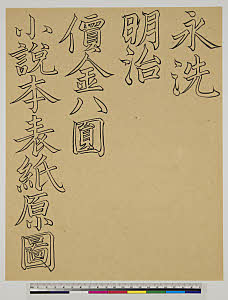 永洗
明治
價金八圓
小說本表紙原圖